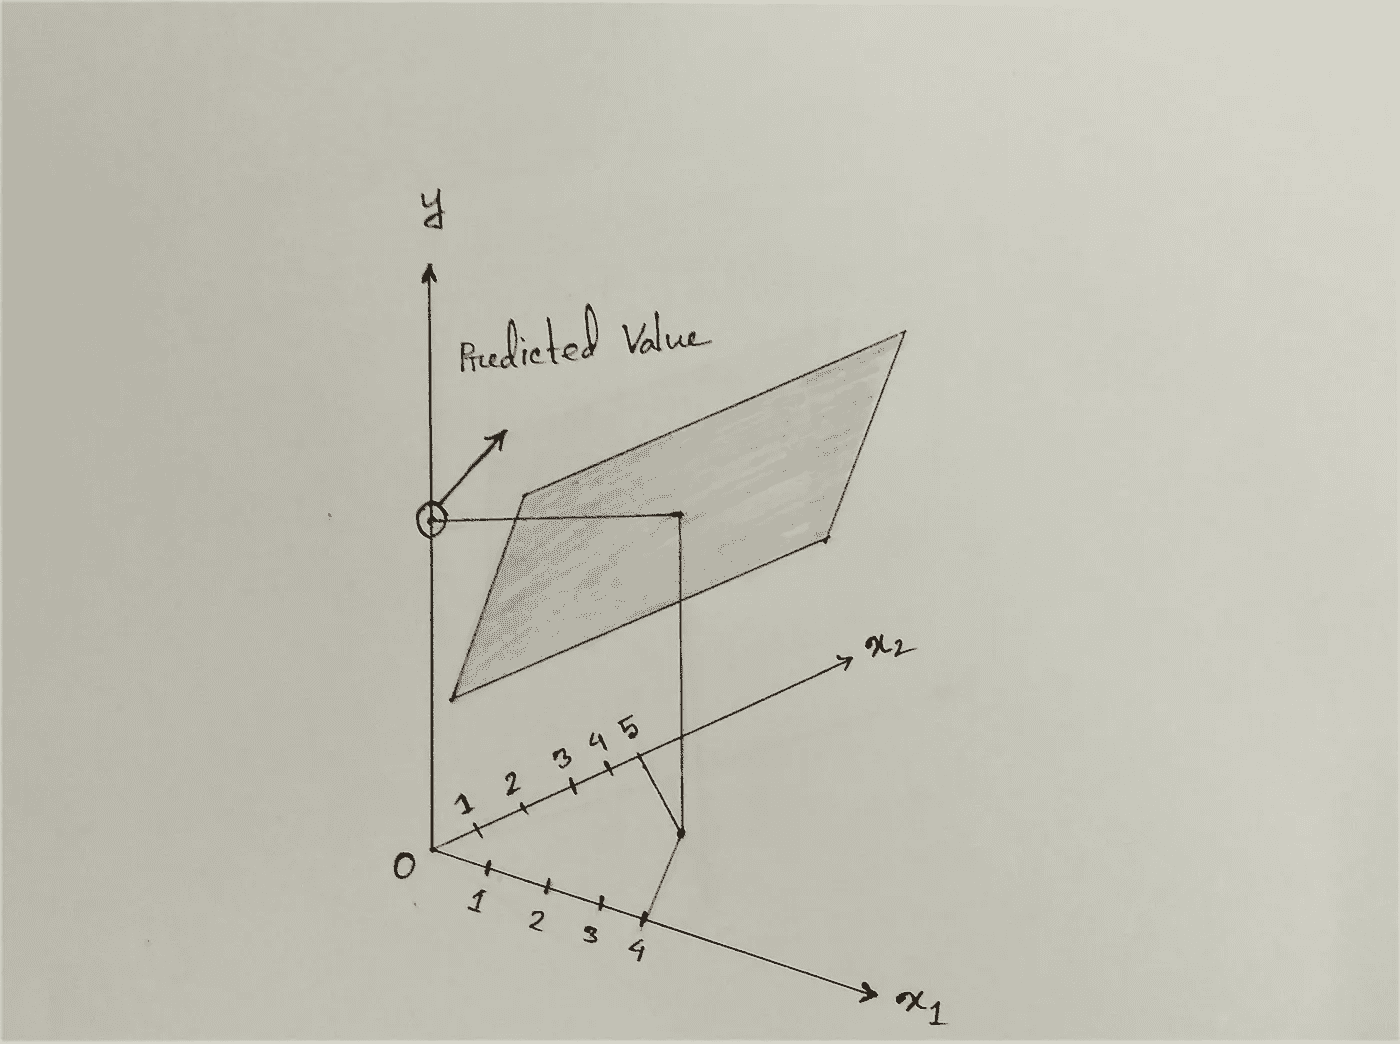 y
Predicted Value
x₂
5
4
3
2
1
O
1
2
3
4
x₁